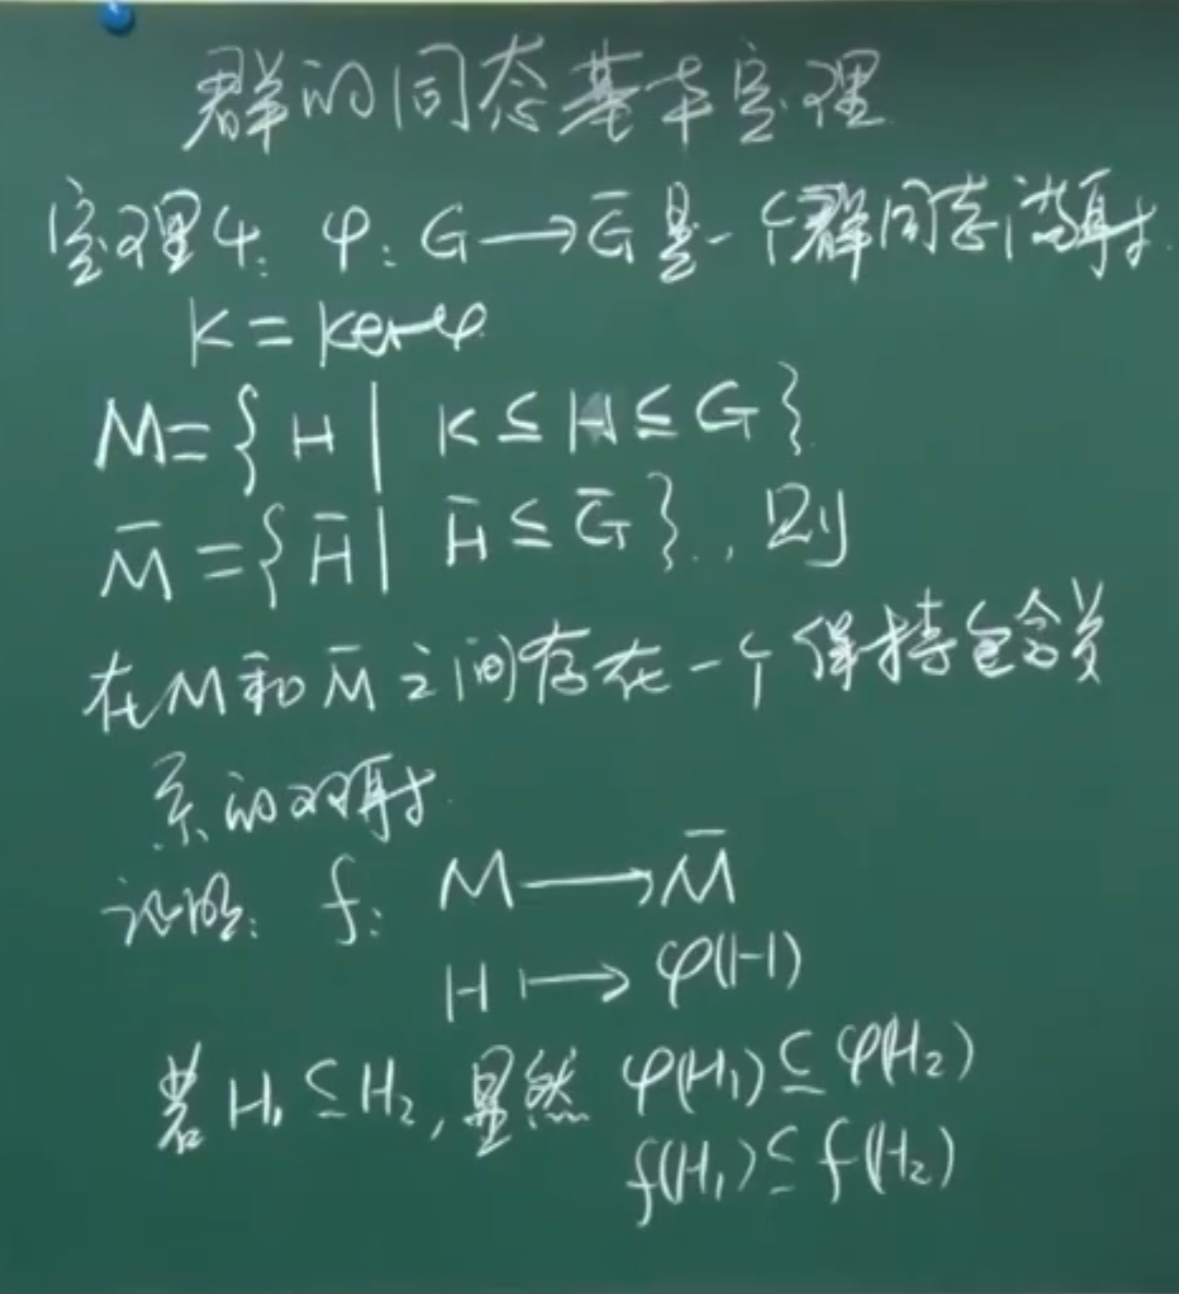 群的同态基本定理
定理4: φ: G⟶Ḡ是一个群同态满射.
K = kerφ
M={ H | K ≤ H ≤ G }
M̄ ={ H̄ | H̄ ≤ Ḡ }., 则
在M和M̄之间存在一个保持包含关
系的双射.
证明: f: M⟶M̄
H ⟼ φ(H)
若H₁ ⊆ H₂, 显然 φ(H₁) ⊆ φ(H₂)
f(H₁) ⊆ f(H₂)